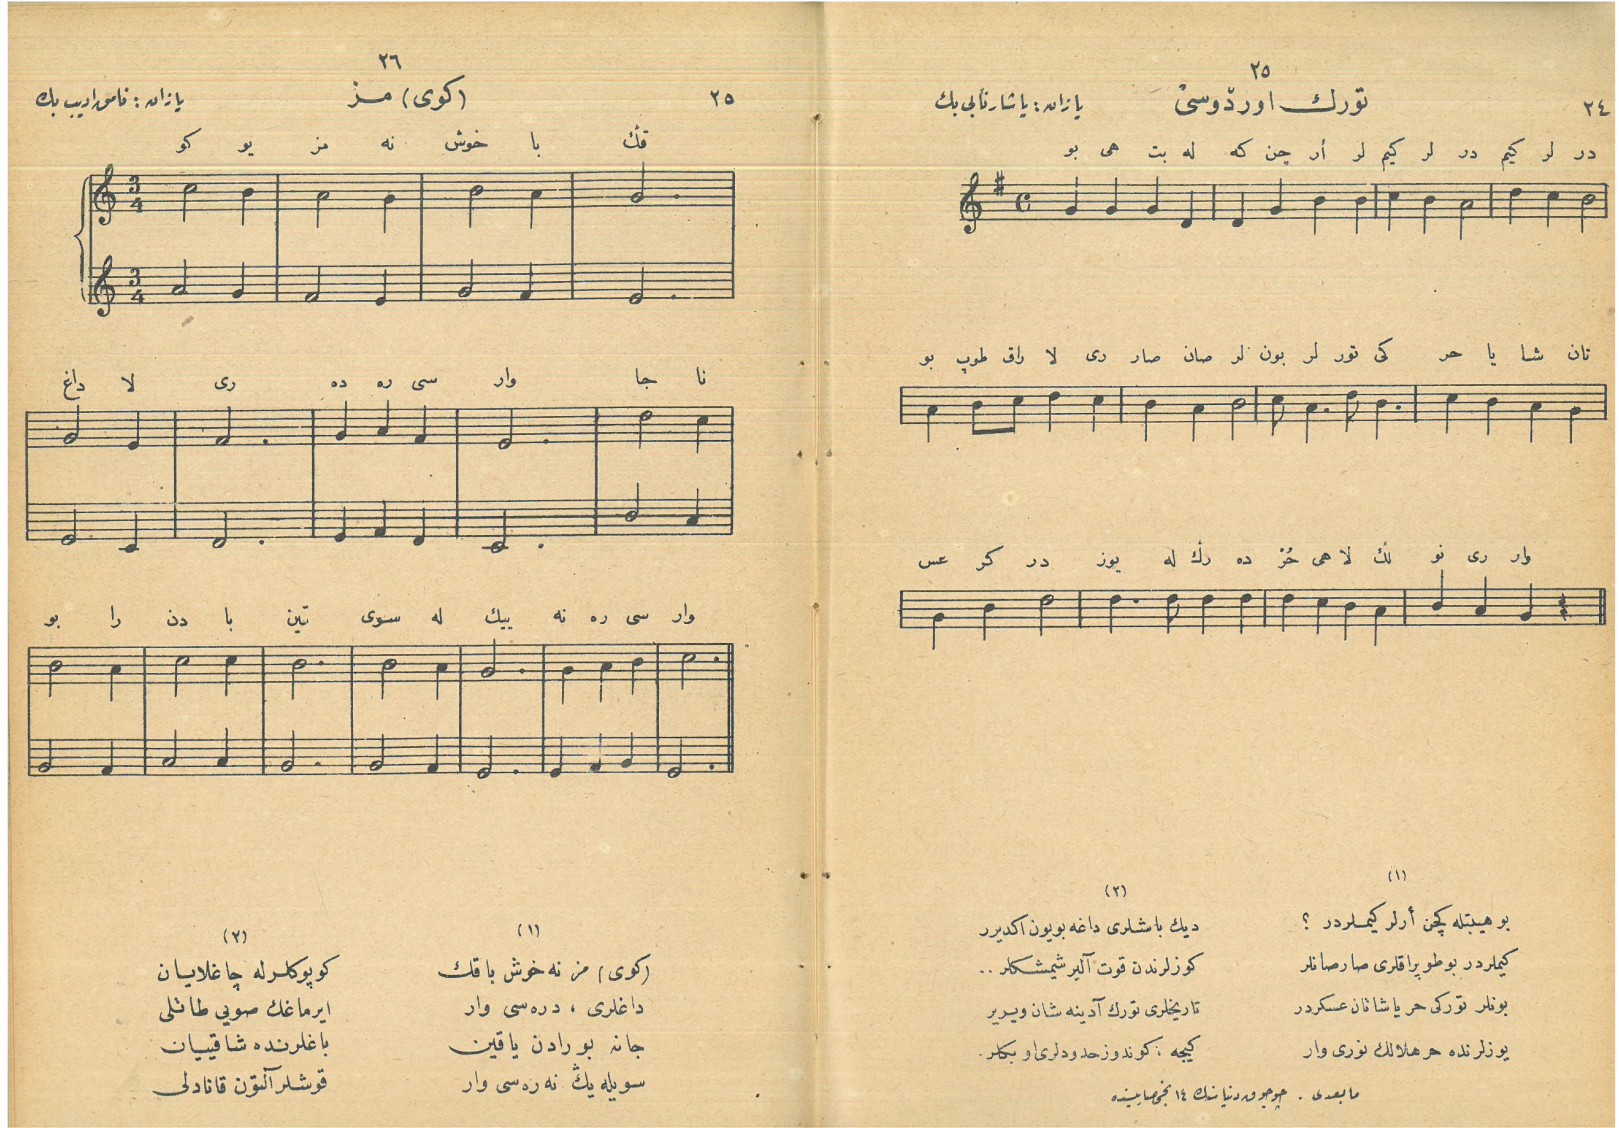 ٢٤
٢٥
تورك اوردوسى
يازان : ياشار نابى بك
بو هى بت له كه چن أر لر كيم لر در كيم لر در
بو طوپ راق لا رى صار صان لر بون لر تور كى حر يا شا تان
عس كر در يوز له رنك ده حر هى لا لك نو رى وار
(١)
بو هيبتله كچن أرلر كيملردر ؟
كيملردر بو طوپراقلرى صارصانلر
بونلر توركى حر ياشاتان عسكردر
يوزلرنده حر هلالك نورى وار
(٢)
ديك باشلرى داغه بويون اكديرر
كوزلرندن قوت آلير شيمشكلر ..
تاريخلرى تورك آدينه شان ويرير
كيجه ، كوندوز حدودلرى او بكلر .
مابعدى . چوجوق دنياسنك ١٤ نجى صاييسنده
٢٥
٢٦
(كوى) مز
يازان : ناموراديب بك
كو يو مز نه خوش با قڭ
داغ لا رى ده ره سى وار جا نا
بو را دن با تين سوى له ييك نه ره سى وار
(١)
(كوى) مز نه خوش باقك
داغلرى ، دره سى وار
جانه بورادن ياقين
سويله يڭ نه ره سى وار
(٢)
كوپوكلرله چاغلايان
ايرماغك صويى طاتلى
باغلرنده شاقييان
قوشلر آلتون قانادلى